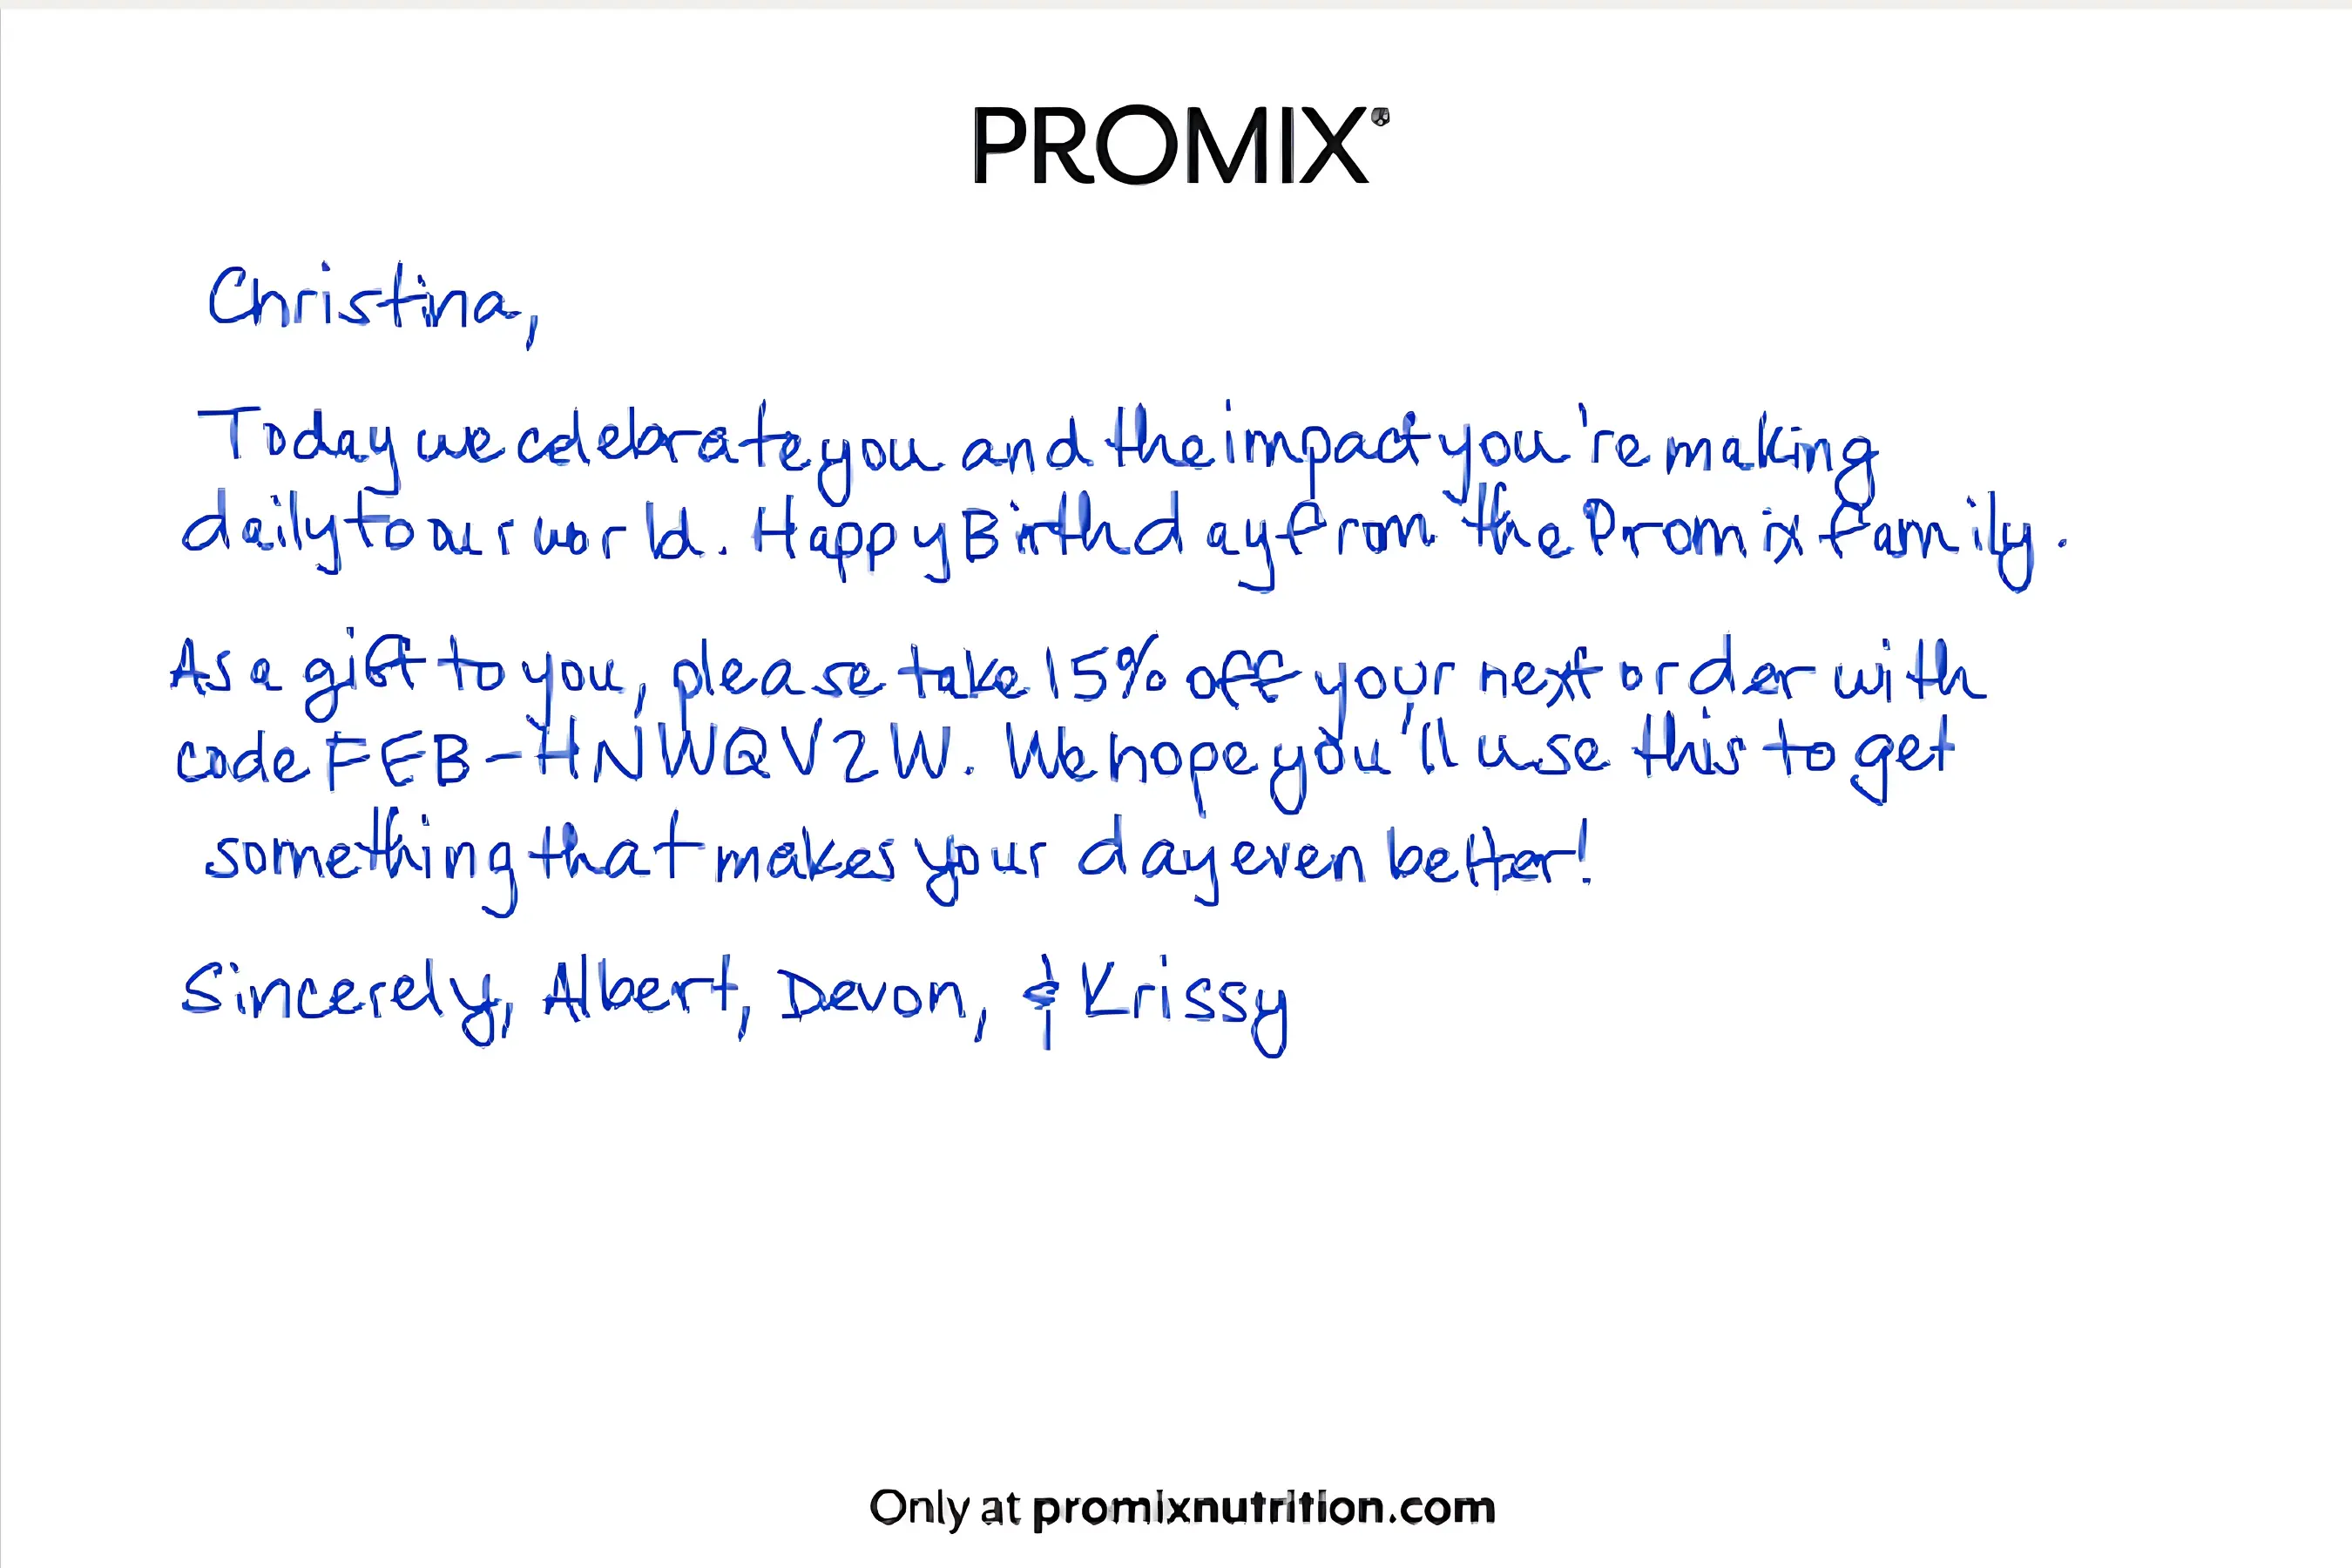 PROMIX
Christina,
Today we celebrate you and the impact you're making
daily to our world. Happy Birthday from the Promix family.
As a gift to you, please take 15% off your next order with
code FEB-HNWQV2W. We hope you'll use this to get
something that makes your day even better!
Sincerely, Albert, Devon, & Krissy
Only at promixnutrition.com